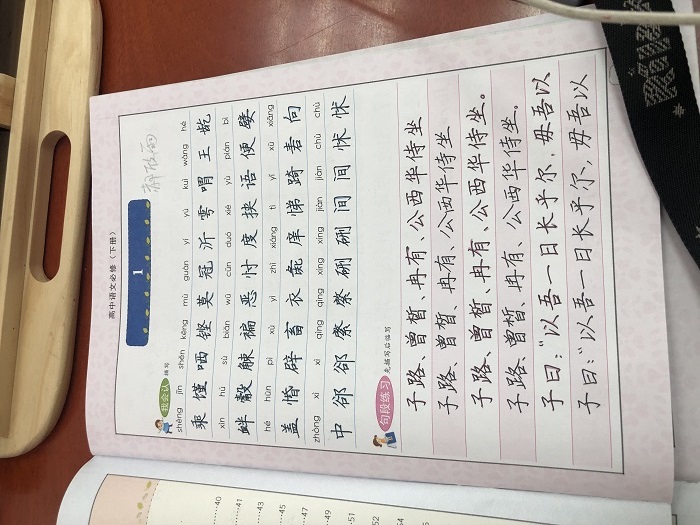 高中语文必修（下册）
1
我会认 描写
shèng jǐn shěn kēng mù guàn yí yú kuì wàng hé
乘 馑 哂 铿 莫 冠 沂 雩 喟 王 龁
xìn hú sù biǎn wū cǔn duó xié yù pián bì
衅 觳 觫 褊 恶 忖 度 挟 语 便 嬖
hé hūn pì xù yì zhì xiáng tì yǐ xū xiǎng
盖 惛 辟 畜 衣 彘 庠 悌 踦 砉 向
zhòng xì xì qìng qìng xíng xíng jiàn jiàn chù chù
中 郤 郤 綮 綮 硎 硎 间 间 怵 怵
句段练习 先描写后临写
子路、曾皙、冉有、公西华侍坐
子路、曾皙、冉有、公西华侍坐
子路、曾皙、冉有、公西华侍坐。
子路、曾皙、冉有、公西华侍坐。
子曰：“以吾一日长乎尔，毋吾以
子曰：“以吾一日长乎尔，毋吾以
40
41
43
45
47
49
51
52
54